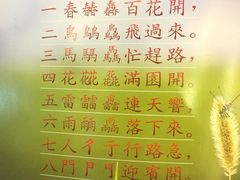 一春百花開，
二鳥飛過來。
三馬騳驫忙趕路，
四花滿園開。
五雷連天響，
六雨落下來。
七人彳亍行路急，
八門迎賓開。